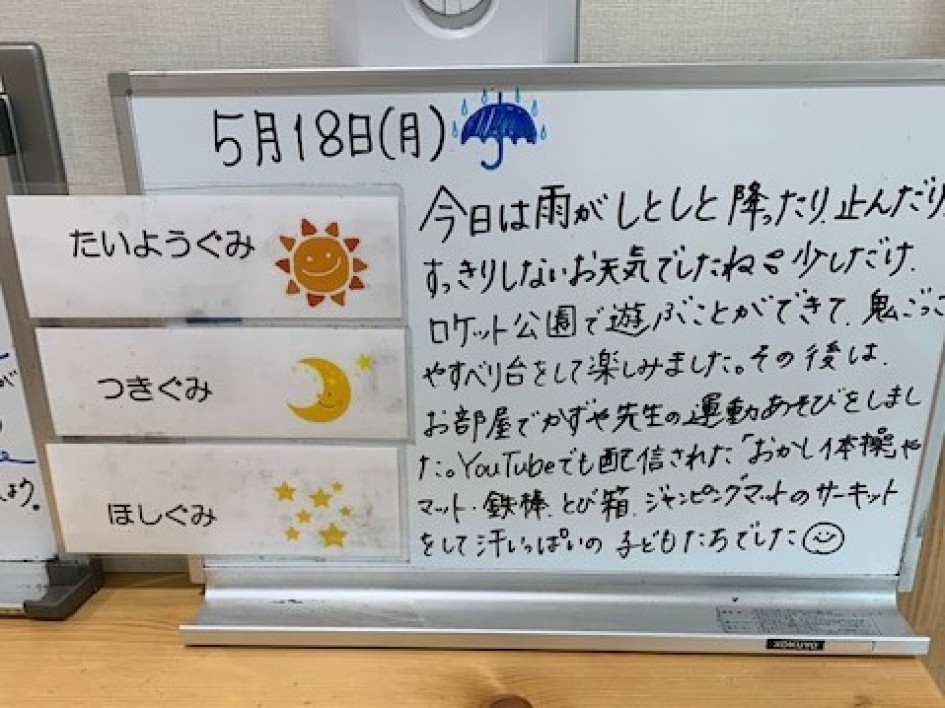 5月18日(月)
たいようぐみ
つきぐみ
ほしぐみ
今日は雨がしとしと降ったり、止んだり
すっきりしないお天気でしたね。少しだけ、
ロケット公園で遊ぶことができて、鬼ごっこ
やすべり台をして楽しみました。その後は、
お部屋でかずや先生の運動あそびをしまし
た。YouTubeでも配信された「おかし体操や
マット・鉄棒、とび箱、ジャンピングマットのサーキット
をして汗いっぱいの子どもたちでした